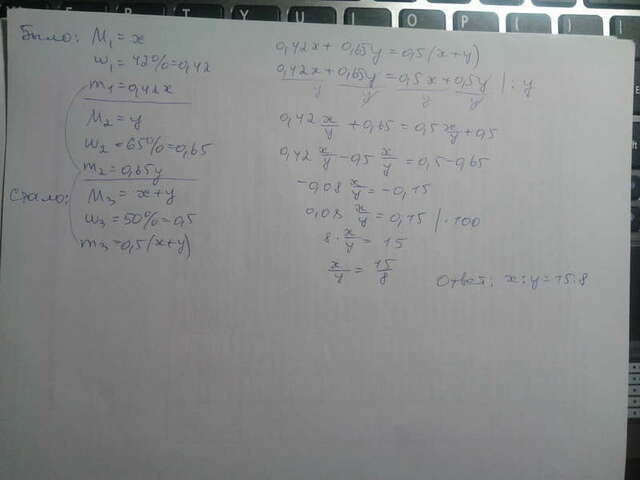 Было: M₁ = x
w₁ = 42% = 0,42
m₁ = 0,42x
M₂ = y
w₂ = 65% = 0,65
m₂ = 0,65y
Стало: M₃ = x+y
w₃ = 50% = 0,5
m₃ = 0,5(x+y)
0,42x + 0,65y = 0,5(x+y)
0,42x/y + 0,65y/y = 0,5x/y + 0,5y/y | : y
0,42 x/y + 0,65 = 0,5 x/y + 0,5
0,42 x/y - 0,5 x/y = 0,5 - 0,65
-0,08 x/y = -0,15
0,08 x/y = 0,15 | · 100
8 · x/y = 15
x/y = 15/8
Ответ: x : y = 15:8
R T Y U I O P